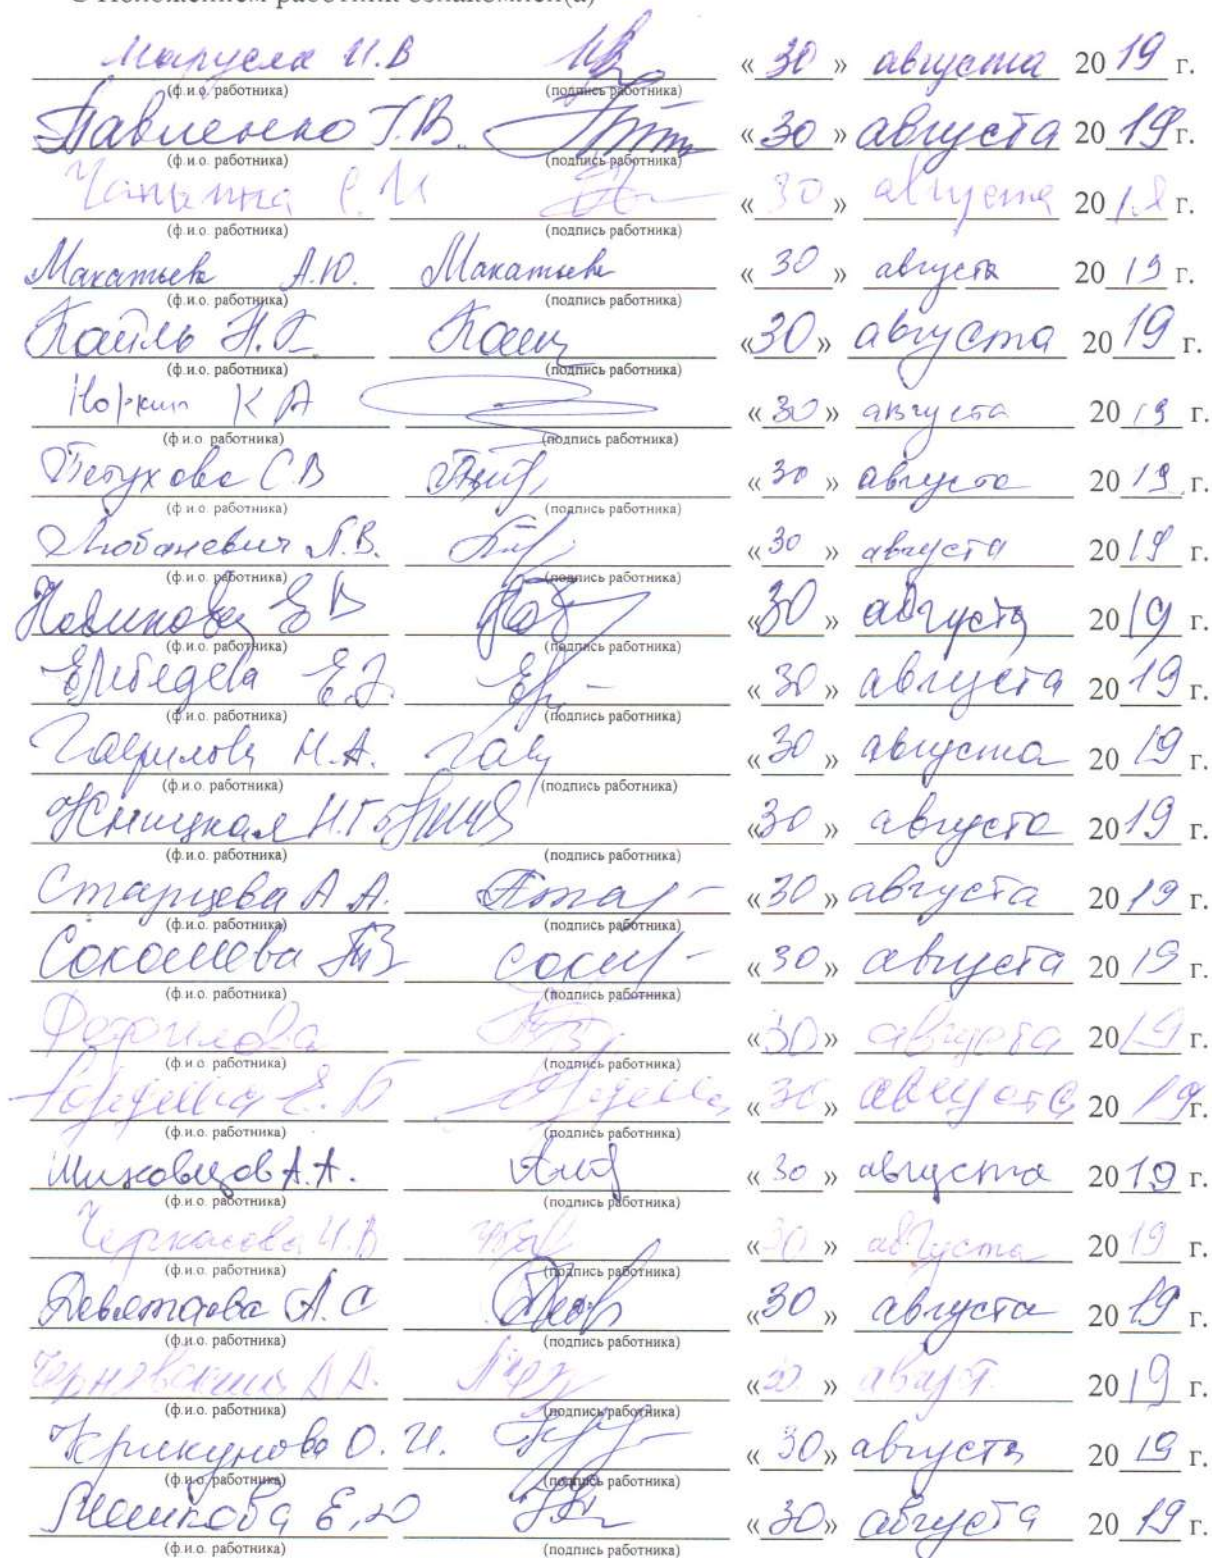 С Положением работник ознакомлен(а)
Маруска И.В « 30 » августа 20 19 г.
(ф.и.о. работника) (подпись работника)
Павленко Т.В. « 30 » августа 20 19 г.
(ф.и.о. работника) (подпись работника)
« 30 » августа 20 19 г.
(ф.и.о. работника) (подпись работника)
А.Ю. « 30 » августа 20 19 г.
(ф.и.о. работника) (подпись работника)
Кайль Н.Г. « 30 » августа 20 19 г.
(ф.и.о. работника) (подпись работника)
Норкин К А « 30 » августа 20 19 г.
(ф.и.о. работника) (подпись работника)
Петухова С В « 30 » августа 20 19 г.
(ф.и.о. работника) (подпись работника)
Любаневич Л.В. « 30 » августа 20 19 г.
(ф.и.о. работника) (подпись работника)
Новикова Е В « 30 » августа 20 19 г.
(ф.и.о. работника) (подпись работника)
« 30 » августа 20 19 г.
(ф.и.о. работника) (подпись работника)
Гаврилова Н.А. « 30 » августа 20 19 г.
(ф.и.о. работника) (подпись работника)
Жницкая Н.Г « 30 » августа 20 19 г.
(ф.и.о. работника) (подпись работника)
Старцева А А. « 30 » августа 20 19 г.
(ф.и.о. работника) (подпись работника)
« 30 » августа 20 19 г.
(ф.и.о. работника) (подпись работника)
« 30 » августа 20 19 г.
(ф.и.о. работника) (подпись работника)
Е. Б « 30 » августа 20 19 г.
(ф.и.о. работника) (подпись работника)
А.А. « 30 » августа 20 19 г.
(ф.и.о. работника) (подпись работника)
Черкасова И.В « 30 » августа 20 19 г.
(ф.и.о. работника) (подпись работника)
Девяткова А. С « 30 » августа 20 19 г.
(ф.и.о. работника) (подпись работника)
А.А. « 30 » август. 20 19 г.
(ф.и.о. работника) (подпись работника)
Крикунова О. И. « 30 » августа 20 19 г.
(ф.и.о. работника) (подпись работника)
Е.Ю « 30 » августа 20 19 г.
(ф.и.о. работника) (подпись работника)